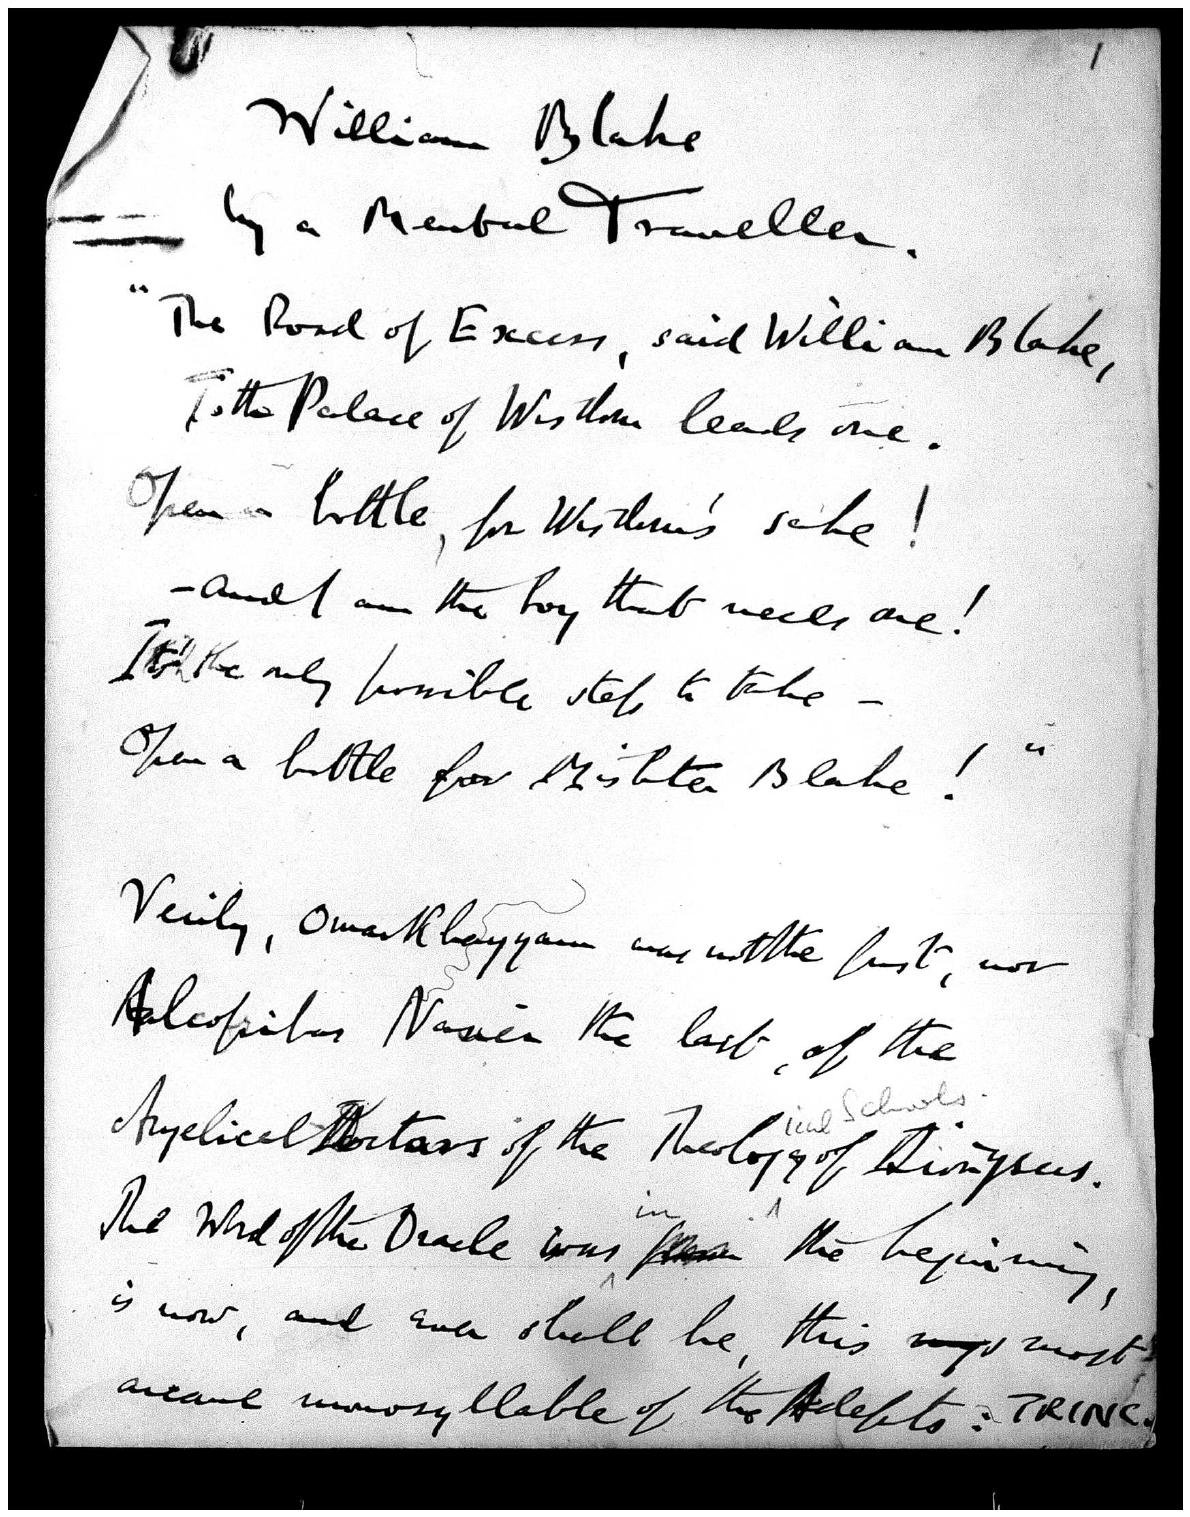 1
William Blake
by a Mental Traveller.
"The Road of Excess, said William Blake,
To the Palace of Wisdom leads one.
Open a bottle, for Wisdom's sake!
- and I am the boy that needs one!
It's the only possible step to take -
Open a bottle for Mishter Blake!"
Verily, Omar Khayyam was not the first, nor
Alcofribas Nasier the last, of the
ical Schools.
Angelical Doctors of the Theology of Dionysus.
in
The Word of the Oracle was from the beginning,
is now, and ever shall be, this most
arcane monosyllable of the Adepts: TRINC.